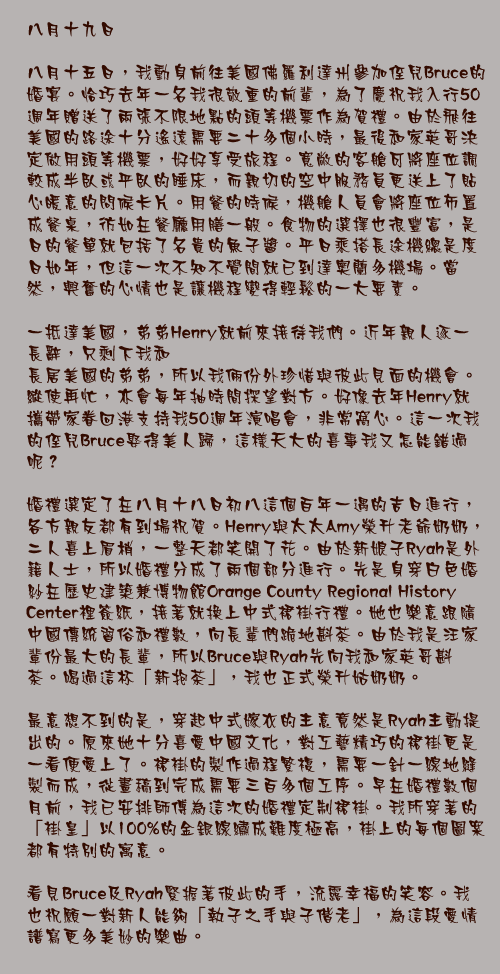 八月十九日
八月十五日，我動身前往美國佛羅利達州參加侄兒Bruce的
婚宴。恰巧去年一名我很敬重的前輩，為了慶祝我入行50
週年贈送了兩張不限地點的頭等機票作為賀禮。由於飛往
美國的路途十分遙遠需要二十多個小時，最後和家英哥決
定啟用頭等機票，好好享受旅程。寬敞的客艙可將座位調
較成半臥或平臥的睡床，而親切的空中服務員更送上了貼
心暖意的問候卡片。用餐的時候，機艙人員會將座位布置
成餐桌，彷如在餐廳用膳一般。食物的選擇也很豐富，是
日的餐單就包括了名貴的魚子醬。平日乘搭長途機總是度
日如年，但這一次不知不覺間就已到達奧蘭多機場。當
然，興奮的心情也是讓機程變得輕鬆的一大要素。
一抵達美國，弟弟Henry就前來接待我們。近年親人逐一
長辭，只剩下我和
長居美國的弟弟，所以我倆份外珍惜與彼此見面的機會。
縱使再忙，亦會每年抽時間探望對方。好像去年Henry就
攜帶家眷回港支持我50週年演唱會，非常窩心。這一次我
的侄兒Bruce娶得美人歸，這樣天大的喜事我又怎能錯過
呢？
婚禮選定了在八月十八日初八這個百年一遇的吉日進行，
各方親友都有到場祝賀。Henry與太太Amy榮升老爺奶奶，
二人喜上眉梢，一整天都笑開了花。由於新娘子Ryah是外
籍人士，所以婚禮分成了兩個部分進行。先是身穿白色婚
紗在歷史建築兼博物館Orange County Regional History
Center裡簽紙，接著就換上中式裙掛行禮。她也樂意跟隨
中國傳統習俗和禮數，向長輩們跪地斟茶。由於我是汪家
輩份最大的長輩，所以Bruce與Ryah先向我和家英哥斟
茶。喝過這杯「新抱茶」，我也正式榮升姑奶奶。
最意想不到的是，穿起中式嫁衣的主意竟然是Ryah主動提
出的。原來她十分喜愛中國文化，對工藝精巧的裙掛更是
一看便愛上了。裙掛的製作過程繁複，需要一針一線地縫
製而成，從畫稿到完成需要三百多個工序。早在婚禮數個
月前，我已安排師傅為這次的婚禮定制裙掛。我所穿著的
「掛皇」以100%的金銀線繡成難度極高，掛上的每個圖案
都有特別的寓意。
看見Bruce及Ryah緊握著彼此的手，流露幸福的笑容。我
也祝願一對新人能夠「執子之手與子偕老」，為這段愛情
譜寫更多美妙的樂曲。